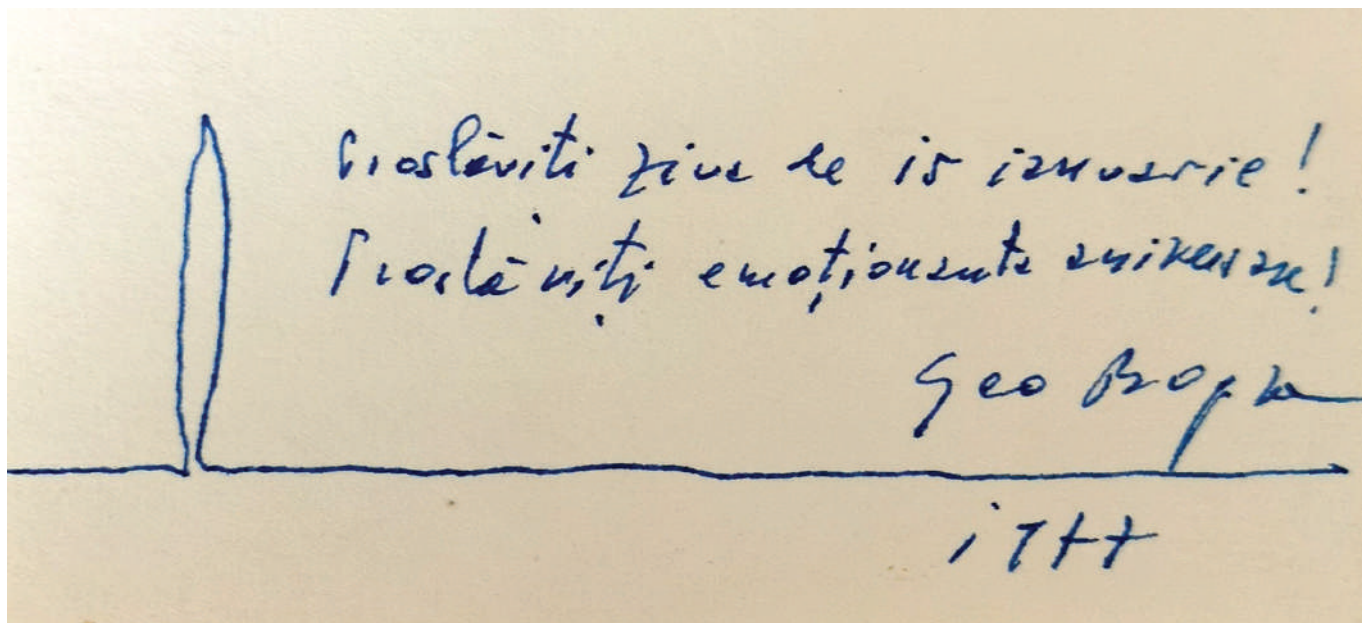 Proslăviți ziua de 15 ianuarie!
Proslăviți emoționanta aniversare!
Geo Bogza
1977